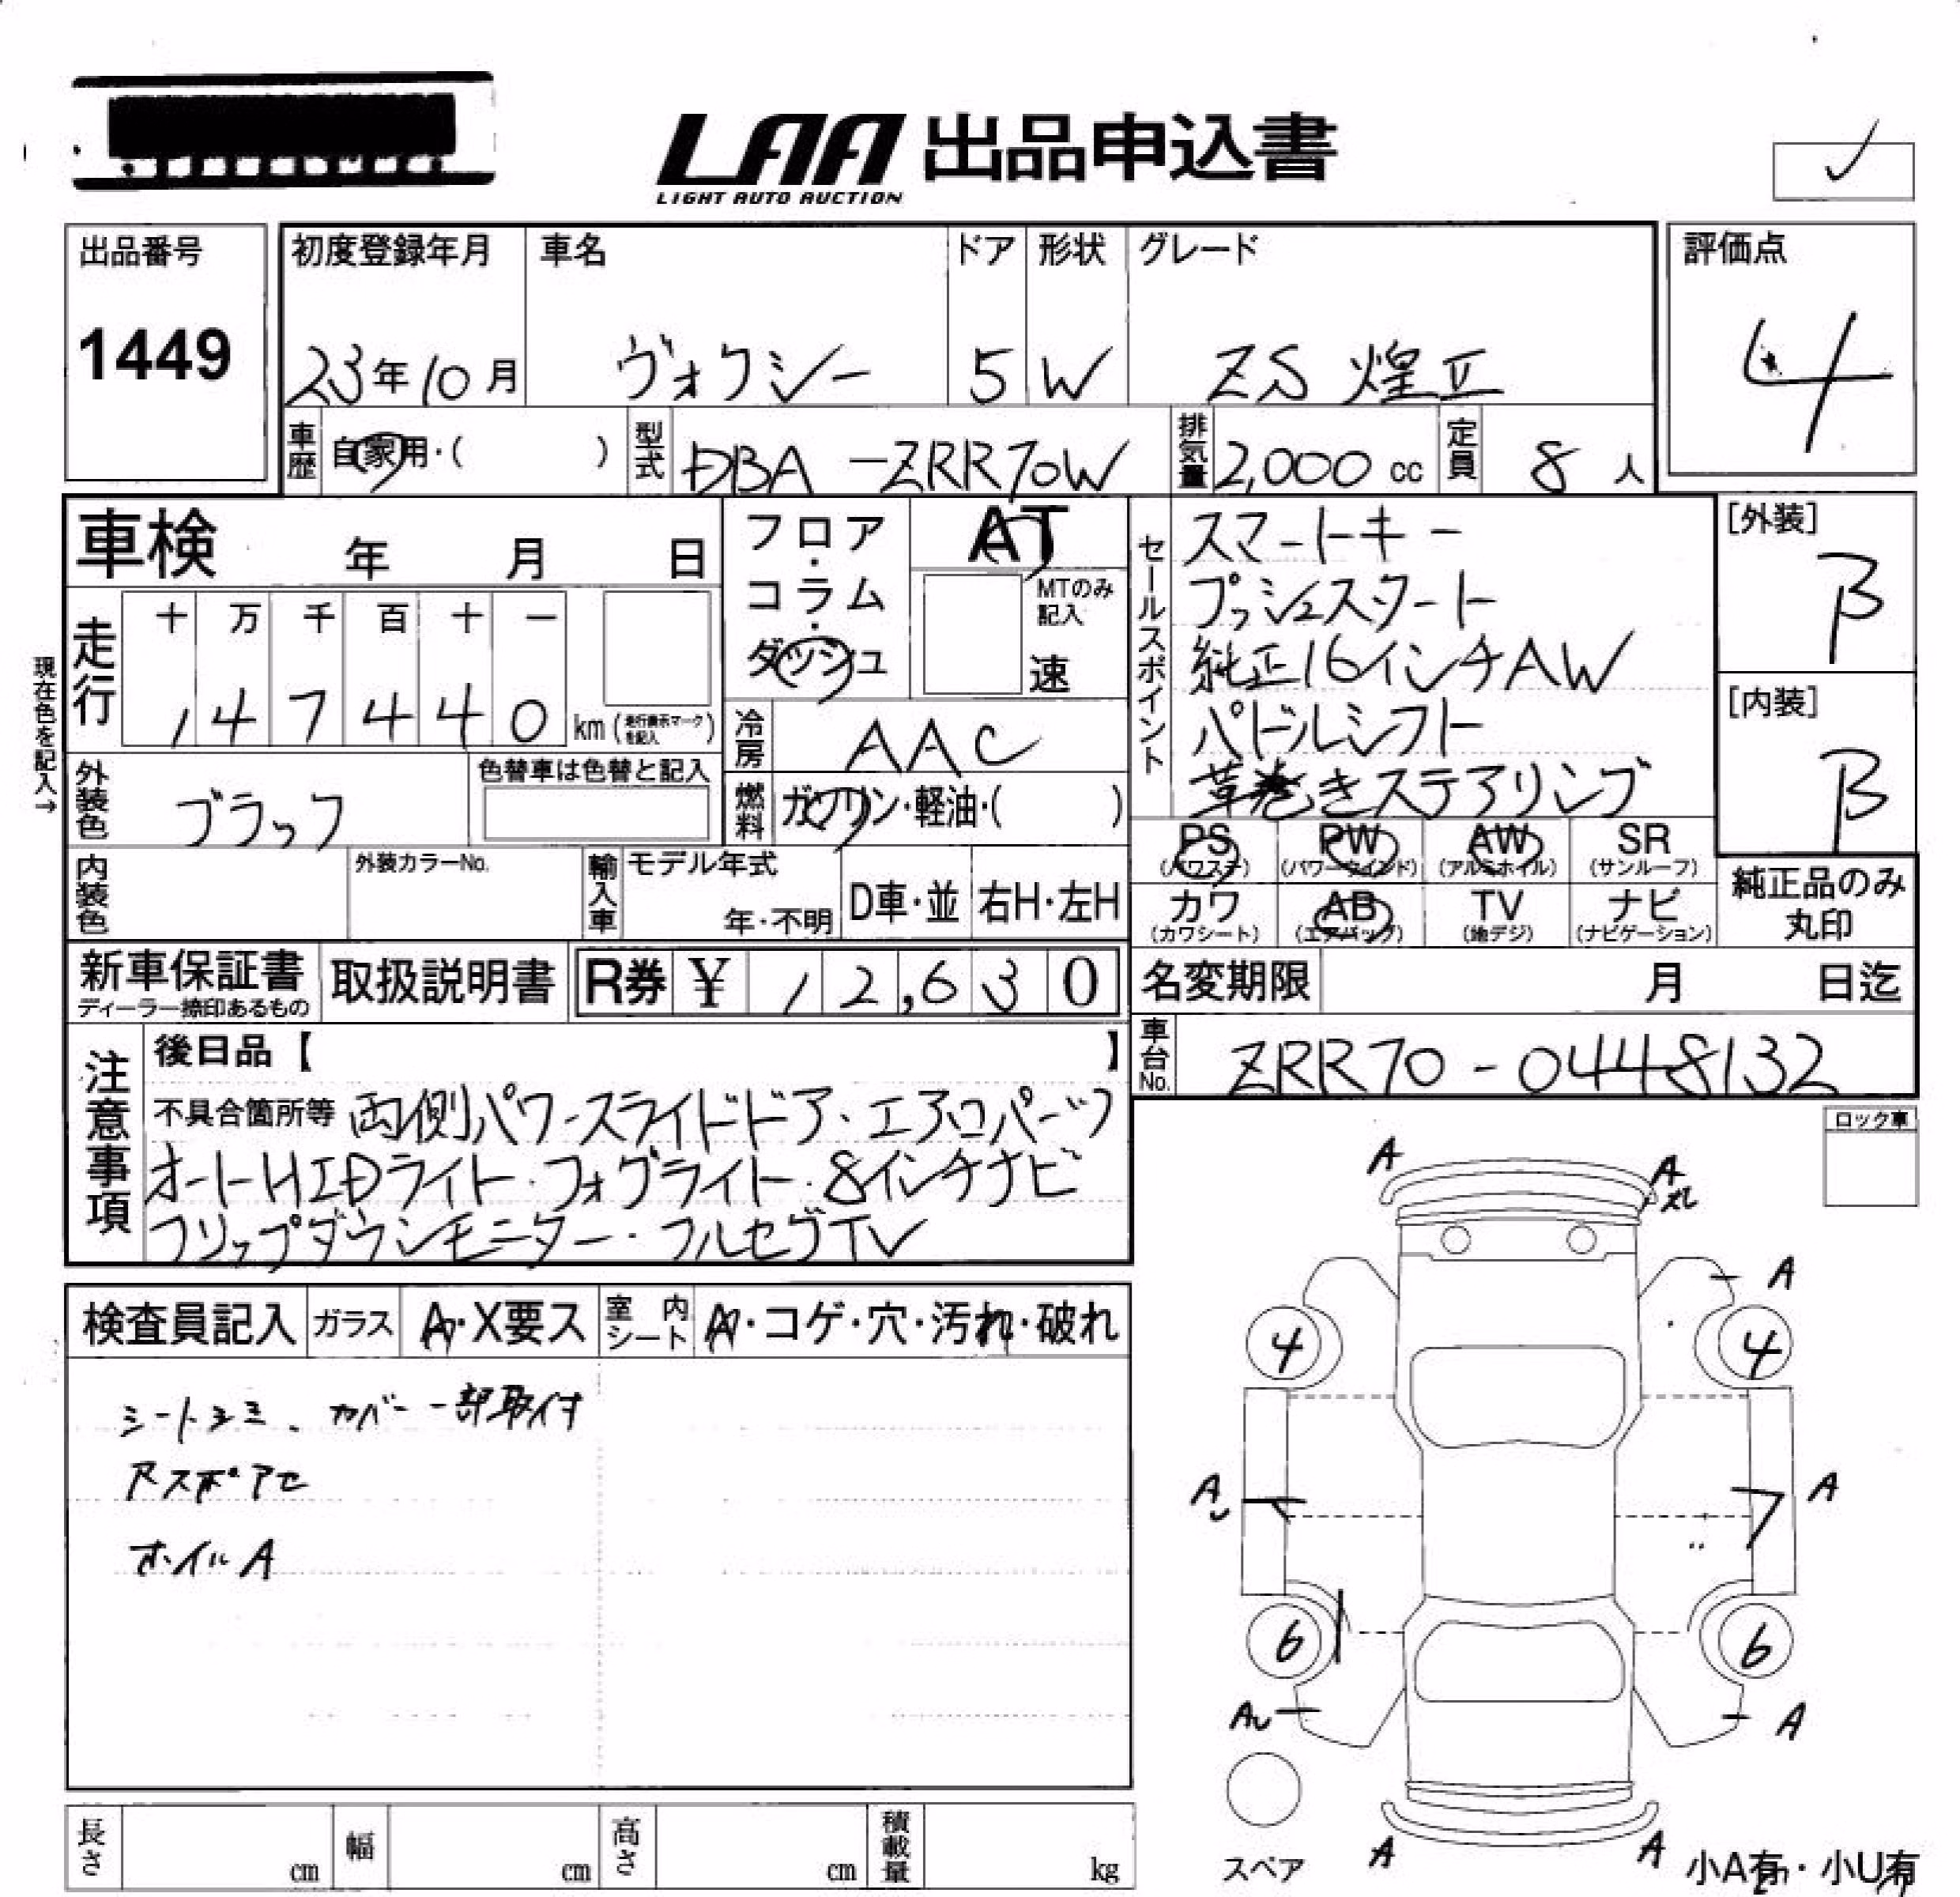 LAA 出品申込書
LIGHT AUTO AUCTION
出品番号
1449
初度登録年月 車名 ドア 形状 グレード
23年10月 ヴォクシー 5 W ZS 煌II
評価点
4
車歴 自家用・( ) 型式 DBA-ZRR70W 排気量 2,000 cc 定員 8 人
車検 年 月 日
フロア・コラム・ダッシュ
AT
MTのみ記入
速
セールスポイント
スマートキー
プッシュスタート
純正16インチAW
パドルシフト
革巻きステアリング
[外装]
B
[内装]
B
現在色を記入→
走行 十 万 千 百 十 一
1 4 7 4 4 0 km (走行表示マークを記入)
冷房 AAC
外装色 ブラック 色替車は色替と記入
燃料 ガソリン・軽油・( )
PS (パワステ) PW (パワーウインド) AW (アルミホイル) SR (サンルーフ)
カワ (カワシート) AB (エアバッグ) TV (地デジ) ナビ (ナビゲーション)
純正品のみ丸印
内装色 外装カラーNo. 輸入車 モデル年式 年・不明 D車・並 右H・左H
新車保証書 取扱説明書 R券 ¥ 12,630
ディーラー捺印あるもの
名変期限 月 日迄
車台No. ZRR70-0448132
注意事項
後日品【 】
不具合箇所等 両側パワースライドドア・エアロパーツ
オートHIDライト・フォグライト・8インチナビ
フリップダウンモニター・フルセグTV
ロック車
検査員記入 ガラス A・X要ス 室内シート A・コゲ・穴・汚れ・破れ
シートヨミ、カバー一部取付
ホイルA
A A
A
4 4
A A
6 6
AU A
スペア
A A
小A有・小U有
長さ cm 幅 cm 高さ cm 積載量 kg